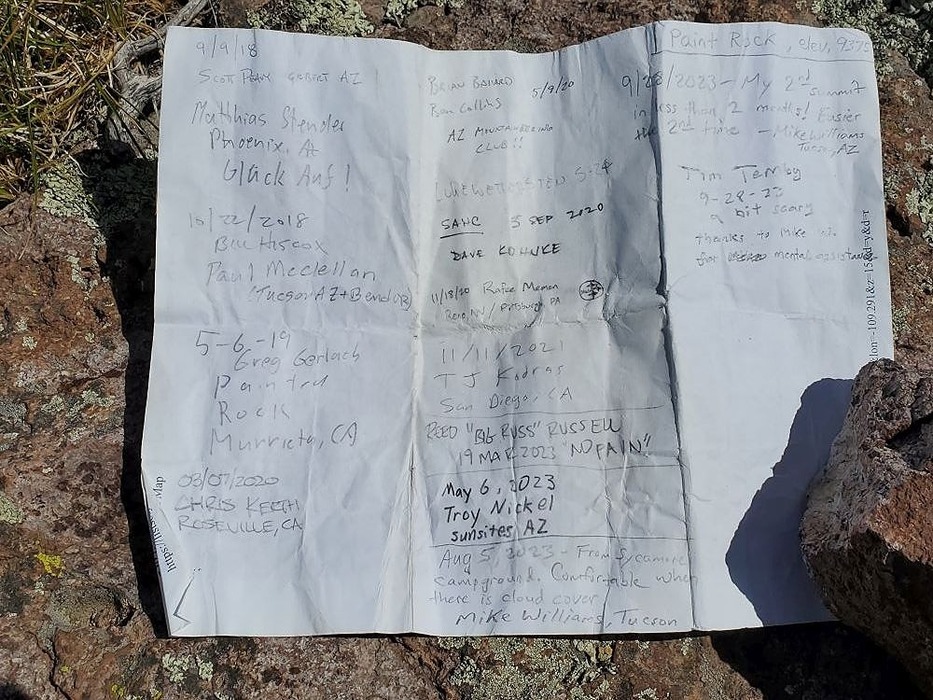 9/9/18
SCOTT PEAVY GERBET AZ !
Matthias Stender
Phoenix, AZ
Glück Auf!
10/22/2018
Bill Hiscox
Paul Mcclellan
(Tucson AZ + Bend OR)
5-6-19
Greg Gerlach
Paintry
Rock
Murrieta, CA
03/07/2020
CHRIS KEITH
ROSEVILLE, CA
https://
Map
BRIAN
5/9/20
Ben Collins
AZ MOUNTAINEERING
CLUB!!
SAHC 5 SEP 2020
DAVE KOHNKE
11/18/20 Rafee Memon
Reno, NV / Pittsburgh PA
11/11/2021
TJ Kodras
San Diego, CA
REED "BIG RUSS" RUSSELL
19 MAR 2023 "NO PAIN"
May 6, 2023
Troy Nickel
sunsites, AZ
Aug 5, 2023 - From Sycamore
campground. Comfortable when
there is cloud cover
Mike Williams, Tucson
Paint Rock, elev. 9375
9/28/2023 - My 2nd summit
in less than 2 months! Easier
the 2nd time - Mike Williams
Tucson, AZ
Tim
9-28-23
a bit scary
Thanks to Mike W.
for mental assistance
lon=-109.291&z=15&d=y&d=r